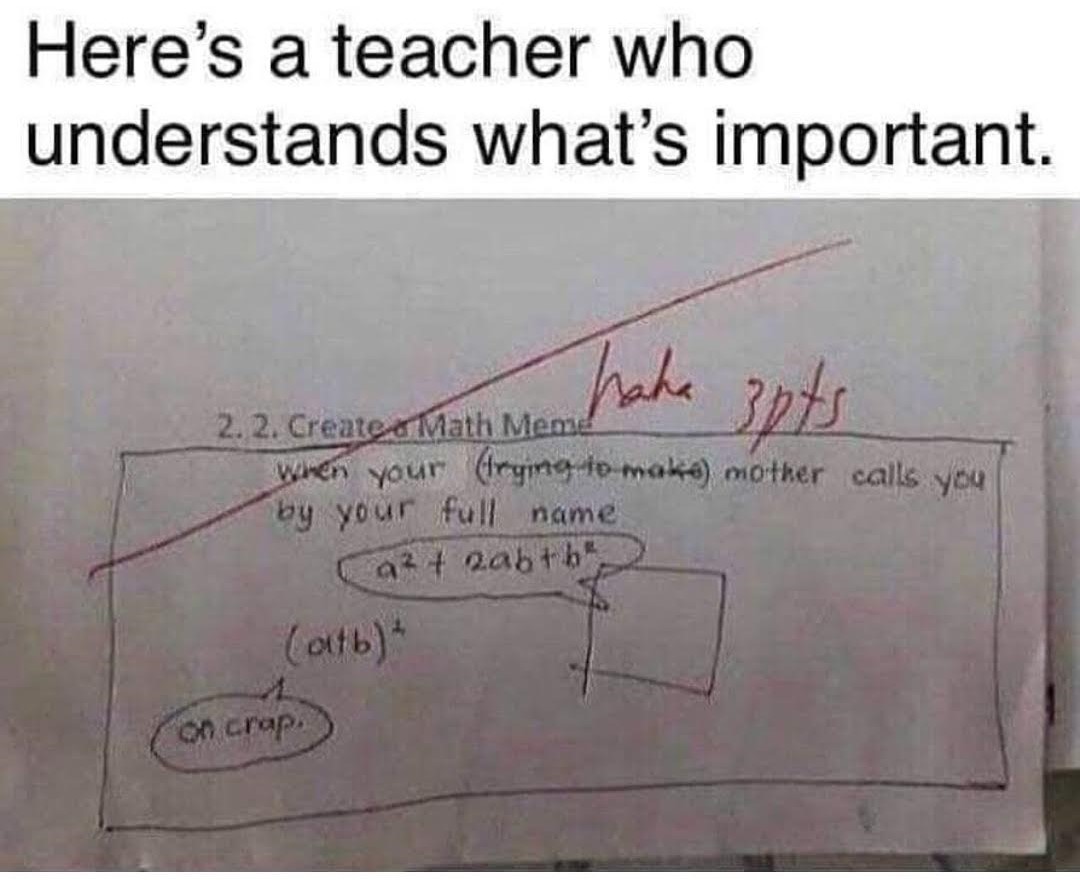 Here's a teacher who
understands what's important.
haha 3pts
2.2. Create a Math Meme
when your (trying to make) mother calls you
by your full name
a² + 2ab + b²
(a+b)²
oh crap.